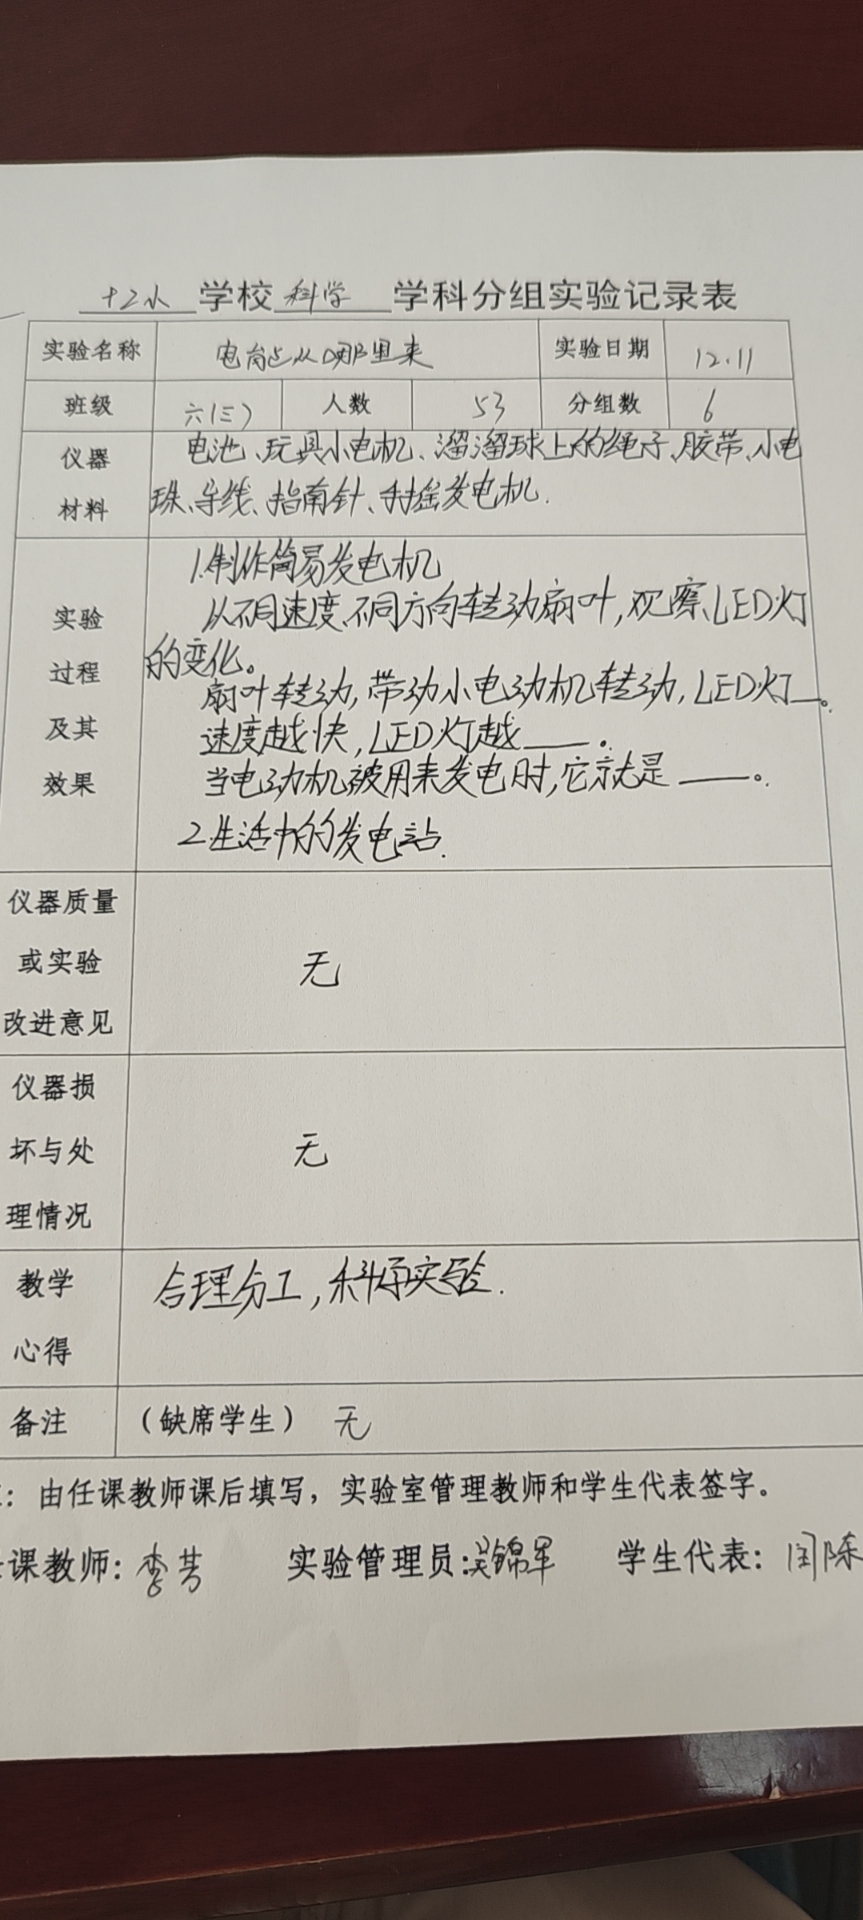 十二小 学校 科学 学科分组实验记录表
实验名称 电能从哪里来 实验日期 12.11
班级 六(三) 人数 53 分组数 6
仪器材料 电池、玩具小电机、溜溜球上的绳子、胶带、小电
珠、导线、指南针、手摇发电机.
实验过程及其效果
1.制作简易发电机
从不同速度、不同方向转动扇叶,观察LED灯
的变化。
扇叶转动,带动小电动机转动,LED灯__。
速度越快,LED灯越___。
当电动机被用来发电时,它就是____。
2.生活中的发电站.
仪器质量或实验改进意见 无
仪器损坏与处理情况 无
教学心得 合理分工,科学实验.
备注 (缺席学生) 无
:由任课教师课后填写,实验室管理教师和学生代表签字。
课教师:李芳 实验管理员:吴锦军 学生代表: